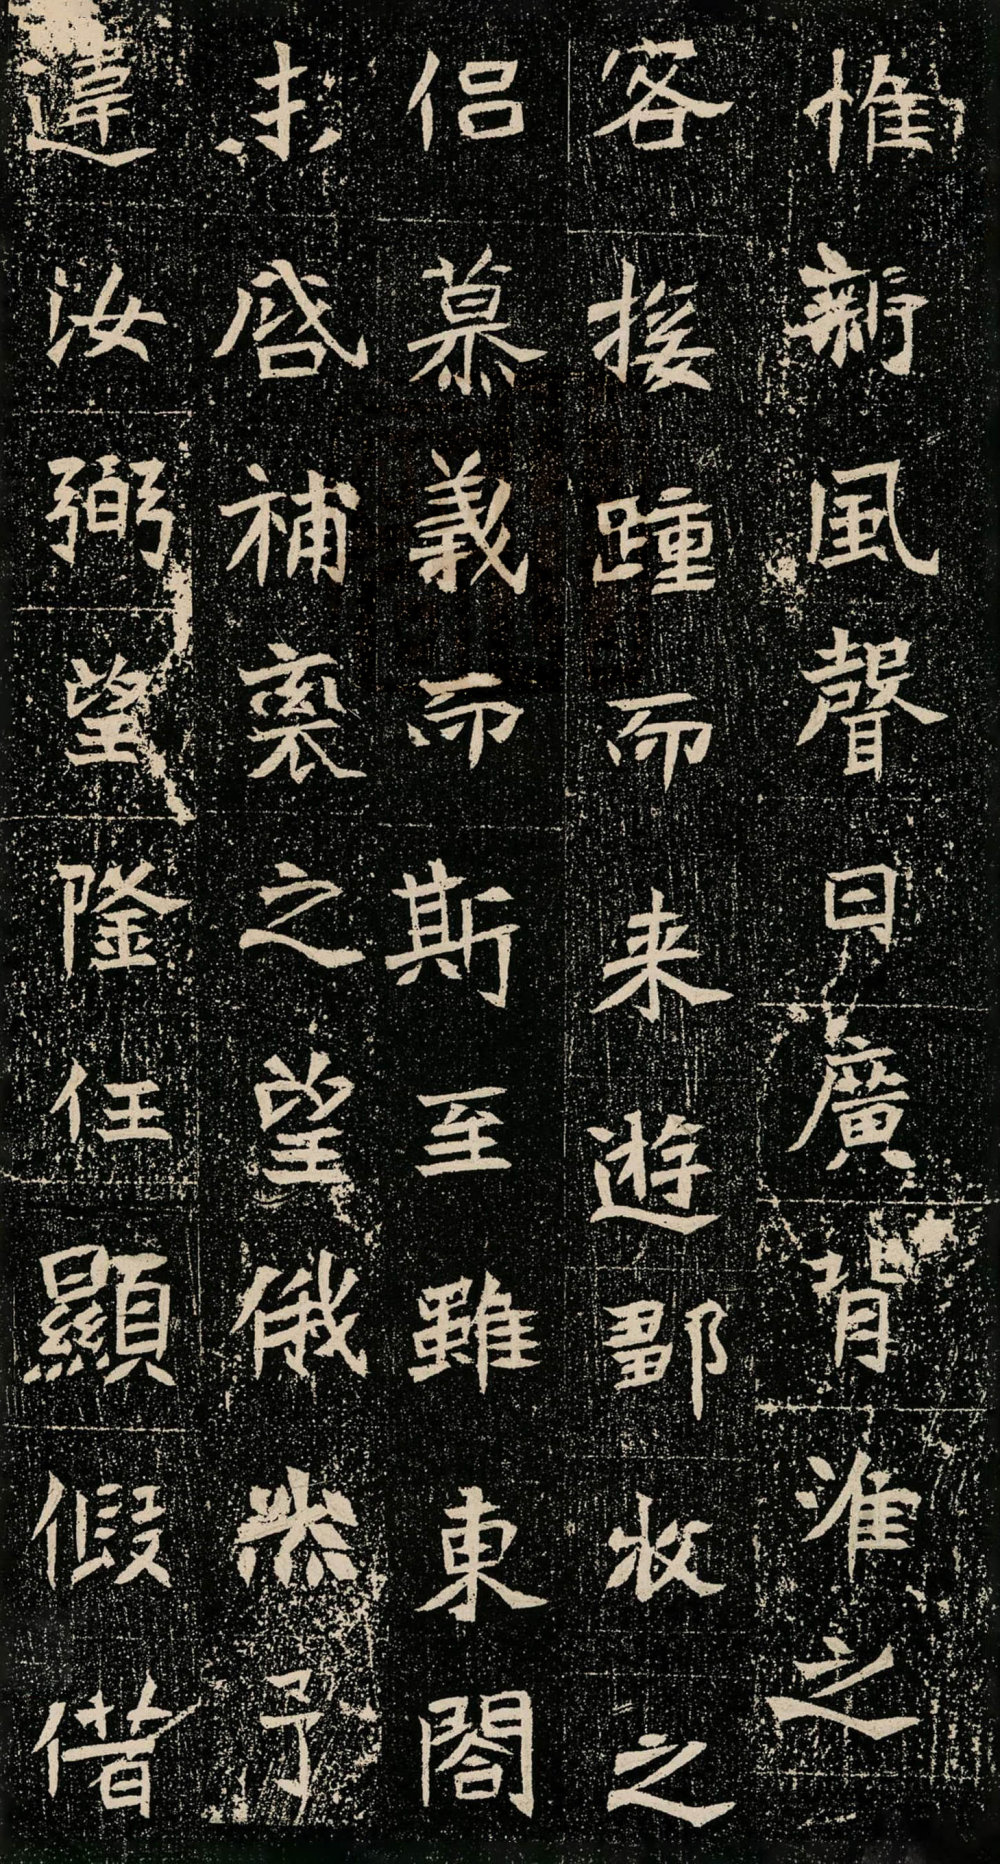 惟新風聲日廣背淮之
客接踵而来遊鄒枚之
侣慕義而斯至雖東閤
未啓補衮之望俄然予
違汝弼望隆任顯假借